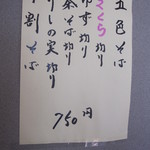 五色そば
さくら切り
ゆず切り
茶そば切り
けしの実切り
十割そば
750円